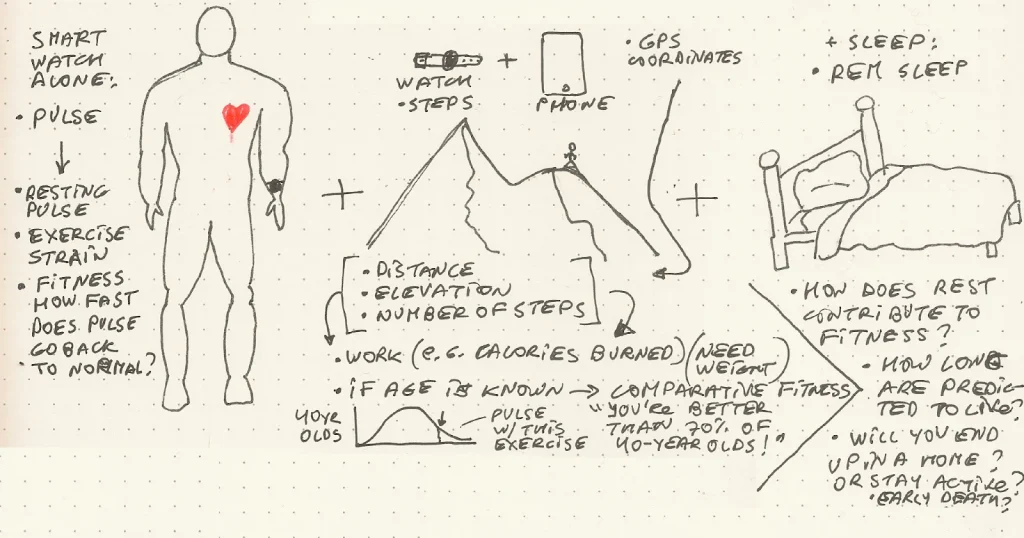 SMART
WATCH
ALONE:
• PULSE
• RESTING
PULSE
• EXERCISE
STRAIN
• FITNESS
HOW FAST
DOES PULSE
GO BACK
• TO NORMAL?
+
WATCH
• STEPS
+
PHONE
• GPS
COORDINATES
• DISTANCE
• ELEVATION
• NUMBER OF STEPS
• WORK (e.G. CALORIES BURNED) (NEED
WEIGHT)
• IF AGE IS KNOWN → COMPARATIVE FITNESS
"YOU'RE BETTER
THAN 70% OF
40-YEAR OLDS!"
40YR
OLDS
PULSE
W/ THIS
EXERCISE
+
+ SLEEP:
• REM SLEEP
• HOW DOES REST
CONTRIBUTE TO
FITNESS?
• HOW LONG
ARE PREDIC-
TED TO LIVE?
• WILL YOU END
UP IN A HOME?
OR STAY ACTIVE?
• EARLY DEATH?